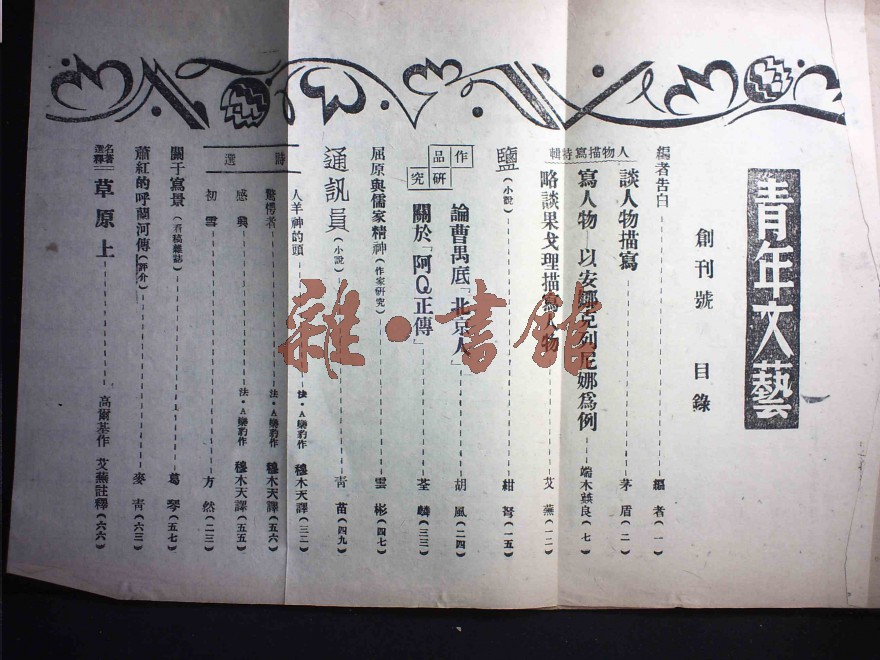 青年文藝
創刊號 目錄
編者告白 編者（一）
人物描寫特輯
談人物描寫 茅盾（二）
寫人物——以安娜克列尼娜爲例 端木蕻良（七）
略談果戈理描寫人物 艾蕪（一二）
鹽（小說） 紺弩（一五）
作品研究
論曹禺底「北京人」 胡風（二四）
關於「阿Q正傳」 荃麟（三三）
屈原與儒家精神（作家研究） 雲彬（四七）
通訊員（小說） 青苗（四九）
詩選
人羊神的頭 法·A欒豹作 穆木天譯（三二）
驚愕者 法·A欒豹作 穆木天譯（五六）
感興 法·A欒豹作 穆木天譯（五五）
初雪 方然（二三）
關于寫景（看稿雜誌） 葛琴（五七）
蕭紅的呼蘭河傳（評介） 麥青（六三）
名著選釋 草原上 高爾基作 艾蕪註釋（六六）
雜·書館